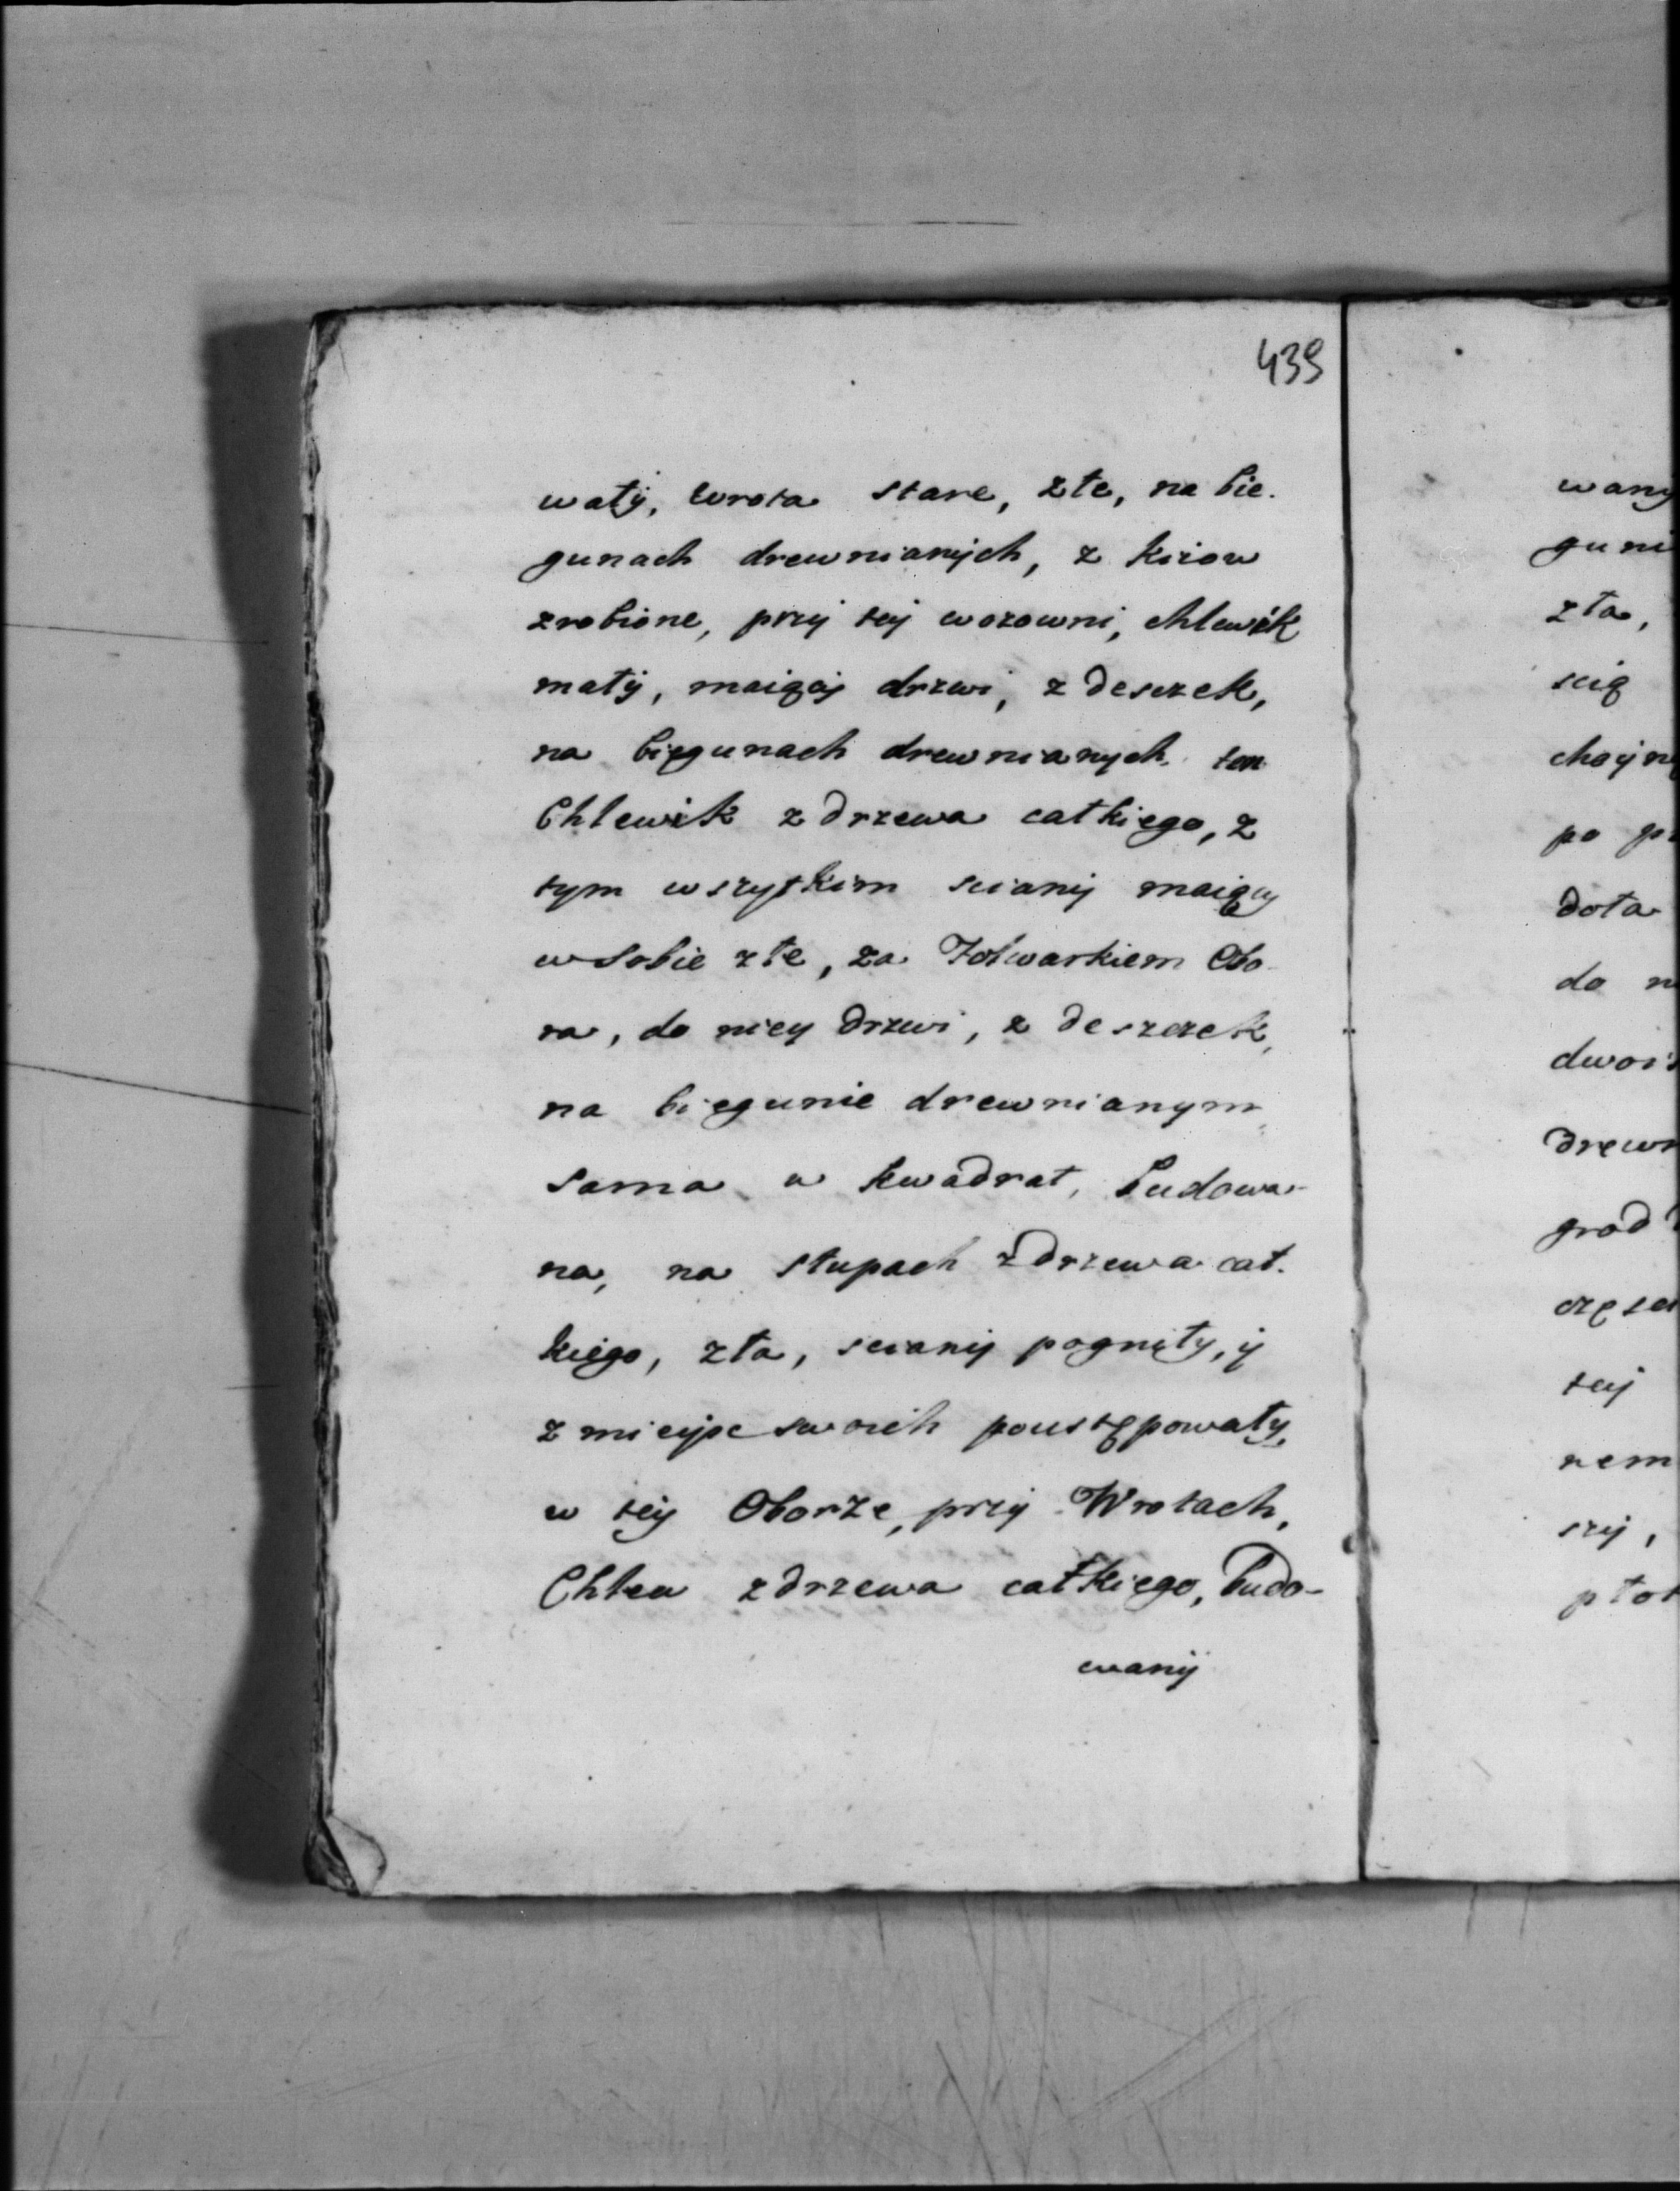 439
wały, wrota stare, złe, na bie.
gunach drewnianych, z kiiow
zrobione, przy tey wozowni, chlewik
mały, maiący drzwi, z deszczek,
na biegunach drewnianych. ten
Chlewik z drzewa całkiego, z
tym wszytkim sciany maiący
w sobie złe, za Folwarkiem Obo-
ra, do niey Drzwi, z deszczek,
na biegunie drewnianym,
sama w kwadrat, budowa-
na, na słupach z Drzewa cał.
kiego, zła, sciany pogniły, y
z mieysc swoich poustępowały,
w tey Oborze, przy Wrotach,
Chlew z Drzewa całkiego, budo-
wany
wany
guni
zła,
scią
choyn
po
dola
do
drewn
grod
tey
nem
szy,
płot